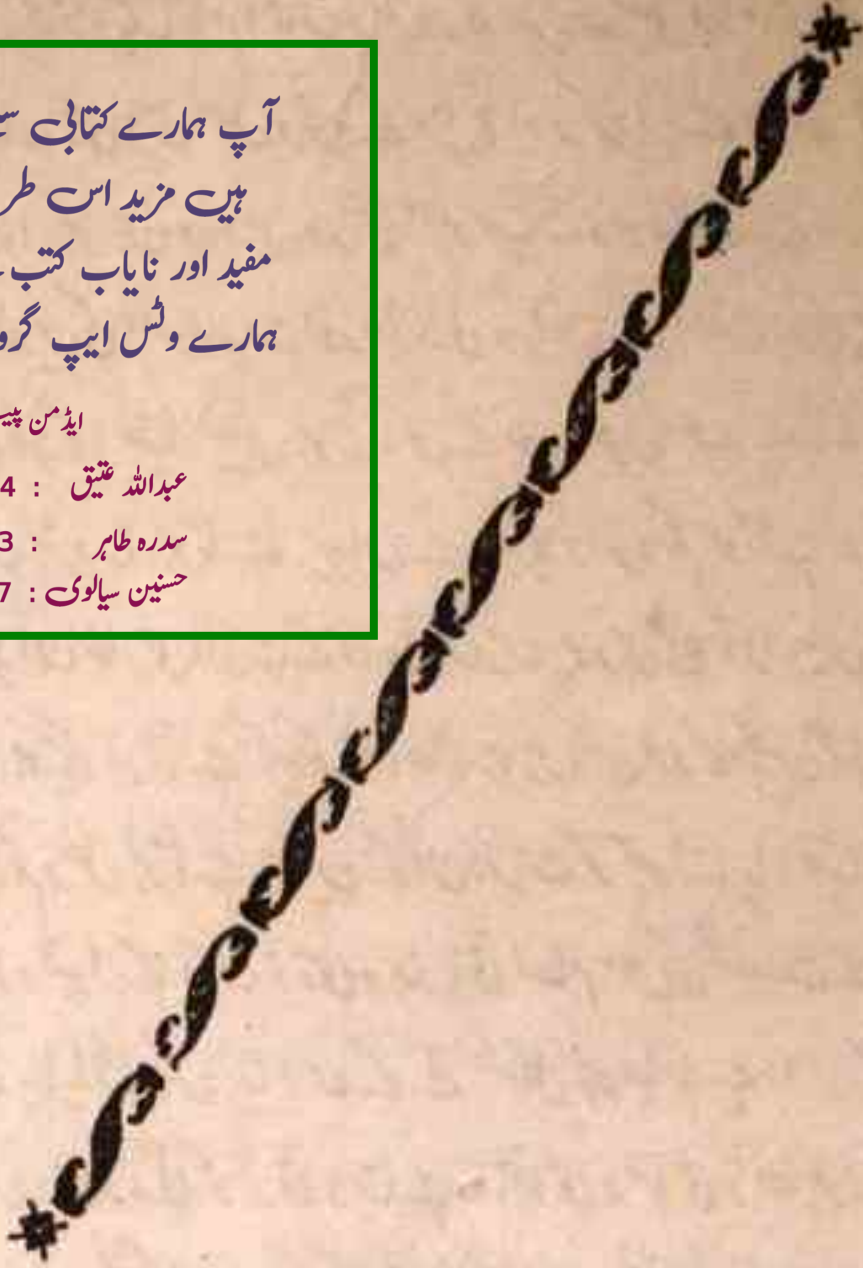 آپ ہمارے کتابی
ہیں مزید اس
مفید اور نایاب کتب
ہمارے وٹس ایپ
ایڈمن
عبداللہ عتیق : 4
سدرہ طاہر : 3
حسنین سیالوی : 7